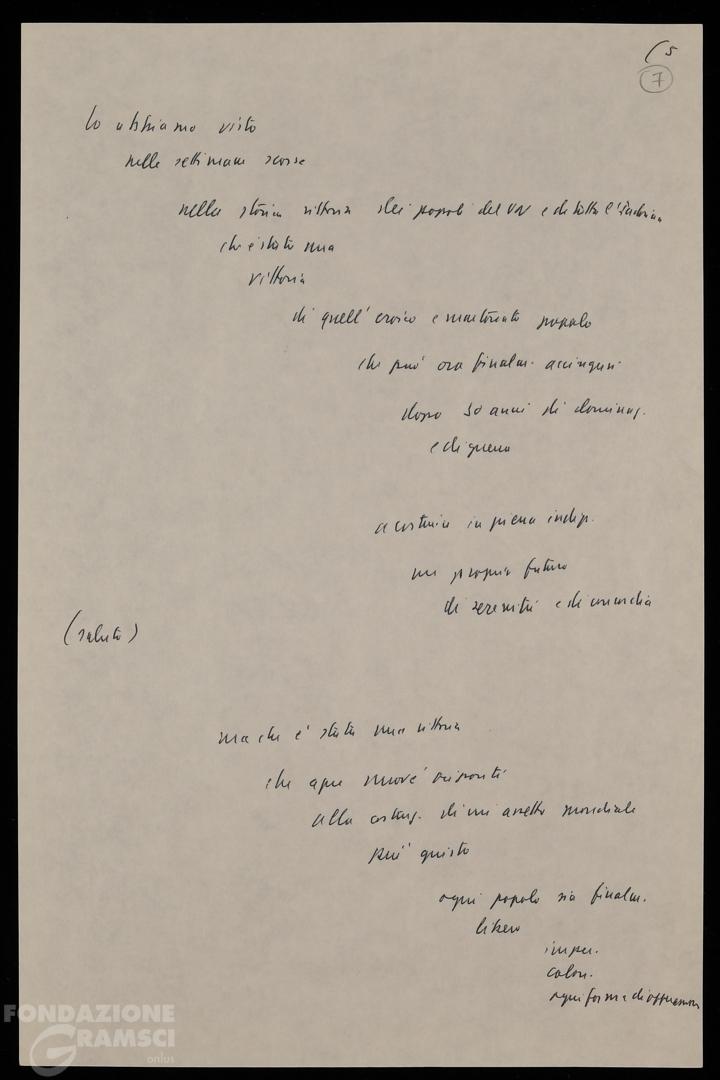 (5
7
Lo abbiamo visto
nelle settimane scorse
nella storica vittoria dei popoli del VN e di tutta l'Indocina
che è stata una
vittoria
di quell'eroico e martoriato popolo
che può ora finalm. accingersi
dopo 30 anni di dominaz.
e di guerra
a costruire in piena indip.
un proprio futuro
di serenità e di concordia
(saluto)
ma che è stata una vittoria
che apre nuovi orizzonti
alla costruz. di un assetto mondiale
più giusto
ogni popolo sia finalm.
libero
imper.
colon.
ogni forma di oppressione
FONDAZIONE
GRAMSCI
onlus